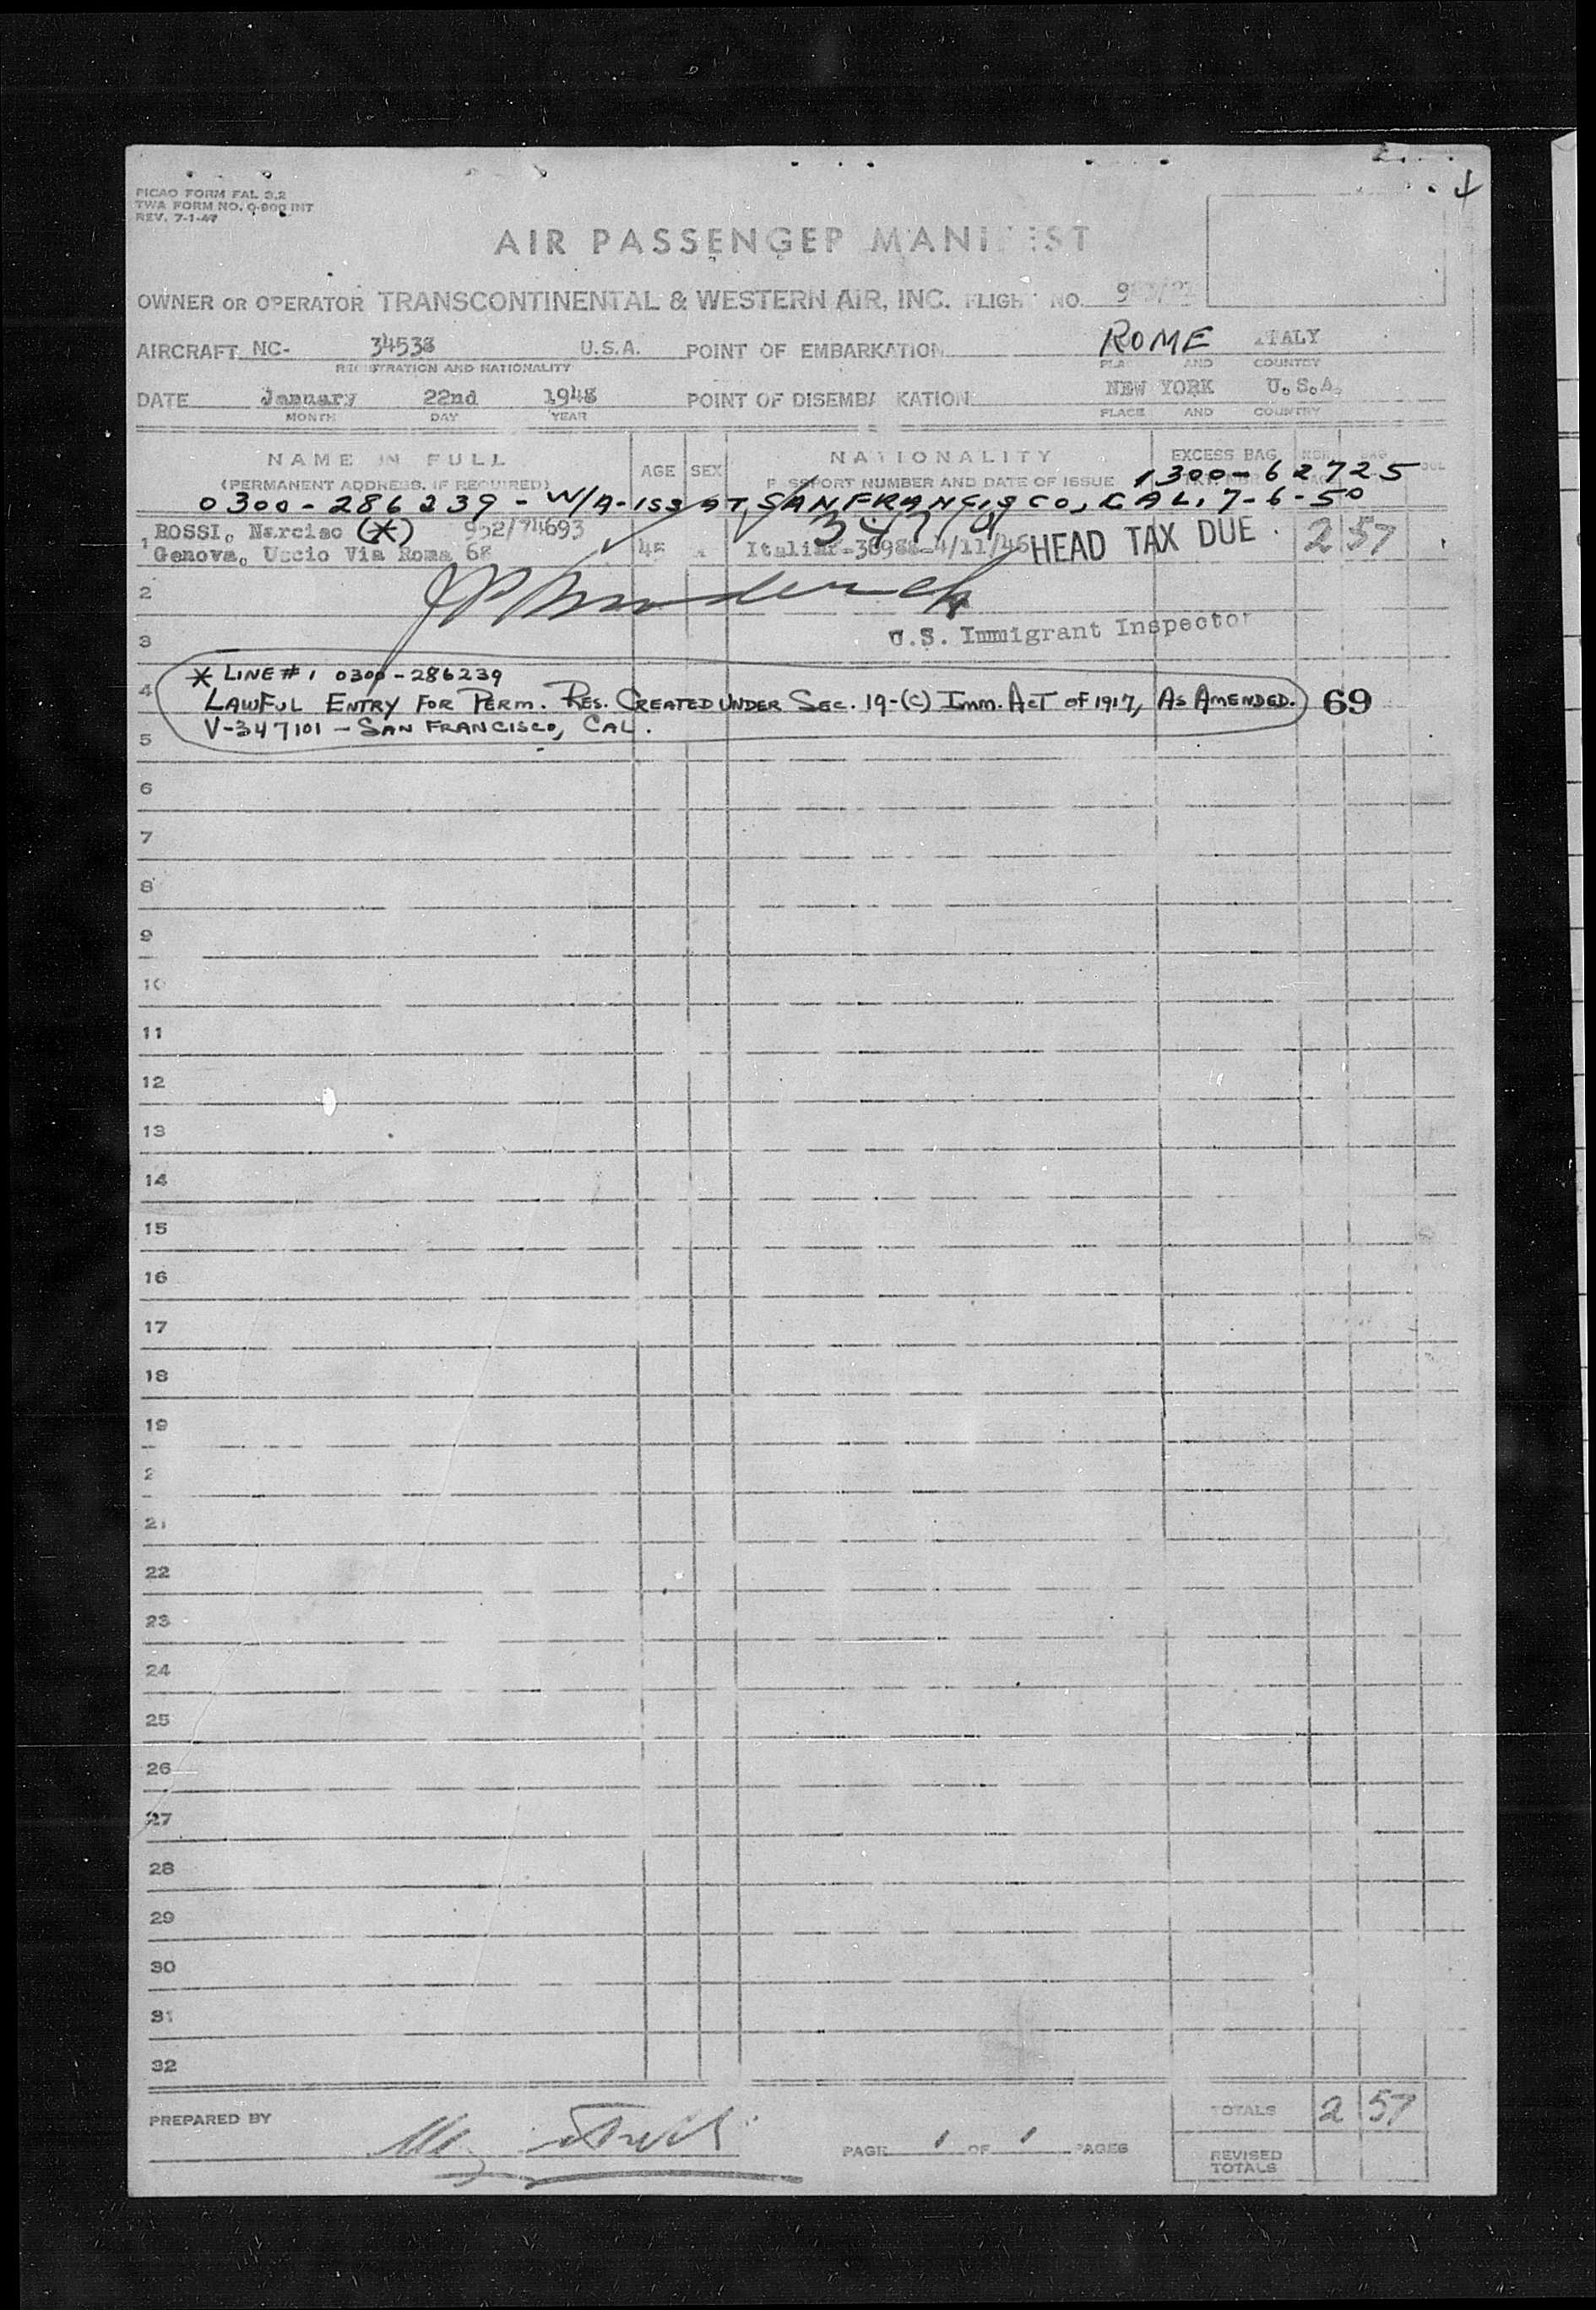 PICAO FORM FAL 3.2
TWA FORM NO. O-900 INT
REV. 7-1-47
AIR PASSENGER MANIFEST
OWNER OR OPERATOR TRANSCONTINENTAL & WESTERN AIR, INC. FLIGHT NO.
AIRCRAFT NC- 34538 U.S.A. POINT OF EMBARKATION ROME ITALY
REGISTRATION AND NATIONALITY PLACE AND COUNTRY
DATE January 22nd 1948 POINT OF DISEMBARKATION NEW YORK U.S.A.
MONTH DAY YEAR PLACE AND COUNTRY
NAME IN FULL AGE SEX NATIONALITY EXCESS BAG
(PERMANENT ADDRESS, IF REQUIRED) PASSPORT NUMBER AND DATE OF ISSUE 1300-62725
0300-286239 - W/A-ISS AT SAN FRANCISCO, CAL. 7-6-50
1 ROSSI, Narciso (*) 952/74693
Genova, Uscio Via Roma 68 HEAD TAX DUE 2 57
2
3 U.S. Immigrant Inspector
* LINE #1 0300-286239
4 LAWFUL ENTRY FOR PERM. RES. CREATED UNDER SEC. 19-(C) IMM. ACT OF 1917, AS AMENDED. 69
5 V-347101 - SAN FRANCISCO, CAL.
6
7
8
9
10
11
12
13
14
15
16
17
18
19
2
21
22
23
24
25
26
27
28
29
30
31
32
PREPARED BY TOTALS 2 57
PAGE 1 OF 1 PAGES
REVISED
TOTALS